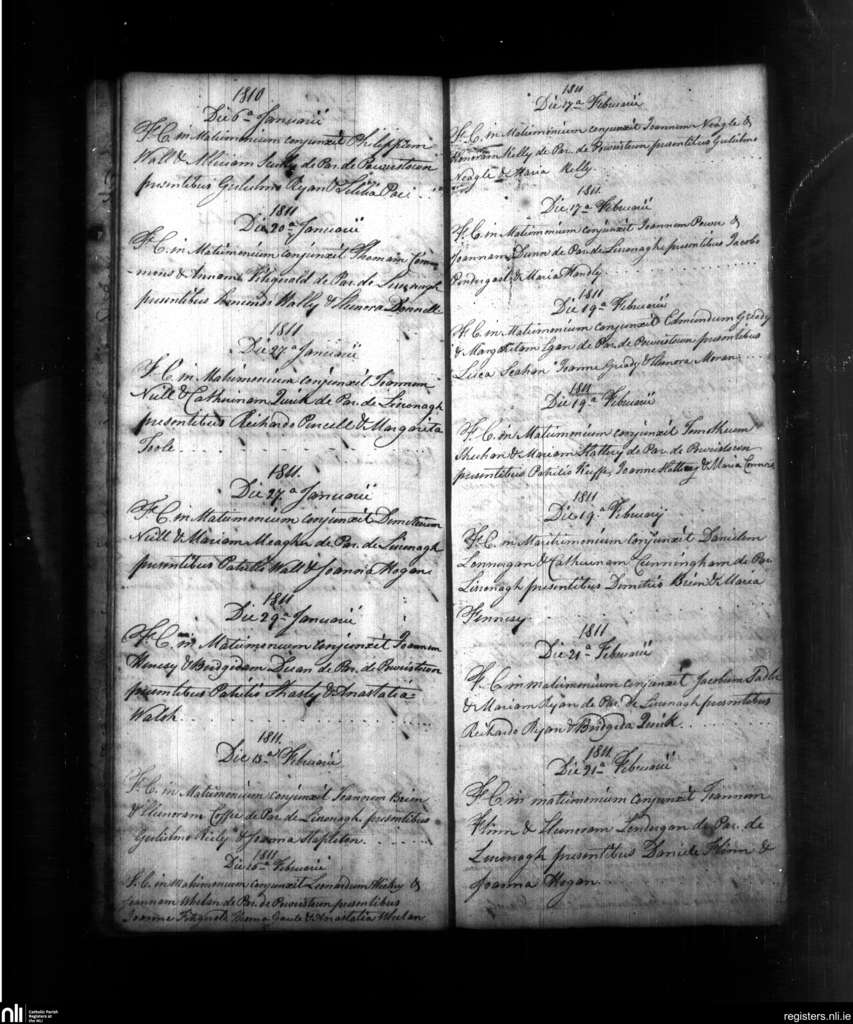 1810
Die 6a Januarii
F. C. in Matrimonium conjunxit Philippum
Wall & Mariam de Par. de Powerstown
presentibus Gulielmo Ryan & Pace
1811
Die 20a Januarii
F. C. in Matrimonium conjunxit Thomam Com-
-mons & Annam Fitzgerald de Par. de Lisronagh
presentibus Hally & Elenora Donnell
1811
Die 27a Januarii
F. C. in Matrimonium conjunxit Joannem
Neill & Catharinam Quirk de Par. de Lisronagh
presentibus Richardo Purcell & Margarita
Toole
1811.
Die 27.a Januarii
F. C. in Matrimonium conjunxit Demetrium
Neill & Mariam Meagher de Par. de Lisronagh
presentibus Patritio Wall & Joanna Hogan
1811
Die 29a Januarii
F. C. in Matrimonium conjunxit Joannem
& Bridgidam de Par. de Powerstown
presentibus Patritio & Anastatia
Walsh
1811.
Die 15.a Februarii
F. C. in Matrimonium conjunxit Joannem Brien
& Elenoram Coffee de Par. de Lisronagh presentibus
Gulielmo Reily & Joanna Stapleton.
1811
Die Februarii
F. C. in Matrimonium conjunxit Leonardum Hickey &
Joannam Whelan de Par. de Powerstown presentibus
Joanne & Anastatia Whelan
1811
Die 17a Februarii
F. C. in Matrimonium conjunxit Joannem Neagle &
Honoram Kelly de Par. de Powerstown presentibus Gulielmo
Neagle & Maria Kelly.
1811.
Die 17.a Februarii
F. C. in Matrimonium conjunxit Joannem Power &
Joannam Dunn de Par. de Lisronagh presentibus Jacobo
Pendergast & Maria Handly.
1811
Die 19a Februarii
F. C. in Matrimonium conjunxit Edmundum Gready
& Margaritam Egan de Par. de Powerstown presentibus
Luca Joanne Gready & Elenora Moran
1811
Die 19.a Februarii
F. C. in Matrimonium conjunxit Timotheum
Sheehan & Mariam de Par. de Powerstown
presentibus Patritio Keeffe, Joanne & Maria
1811
Die 19.a February
F. C. in Matrimonium conjunxit Danielem
Lonnergan & Catharinam Cunningham de Par.
Lisronagh presentibus Dimitrio Brien & Maria
Fennesy
1811
Die 21a Februarii
F. C. in matrimonium conjunxit Jacobum
& Mariam Ryan de Par. de Lisronagh presentibus
Richardo Ryan & Bridgida Quirk
1811
Die 21a Februarii
F. C. in matrimonium conjunxit Joannem
Flinn & Elenoram Londergan de Par. de
Lisronagh presentibus Daniele Flinn &
Joanna Hogan
nli
Catholic Parish
Registers at
the NLI
registers.nli.ie